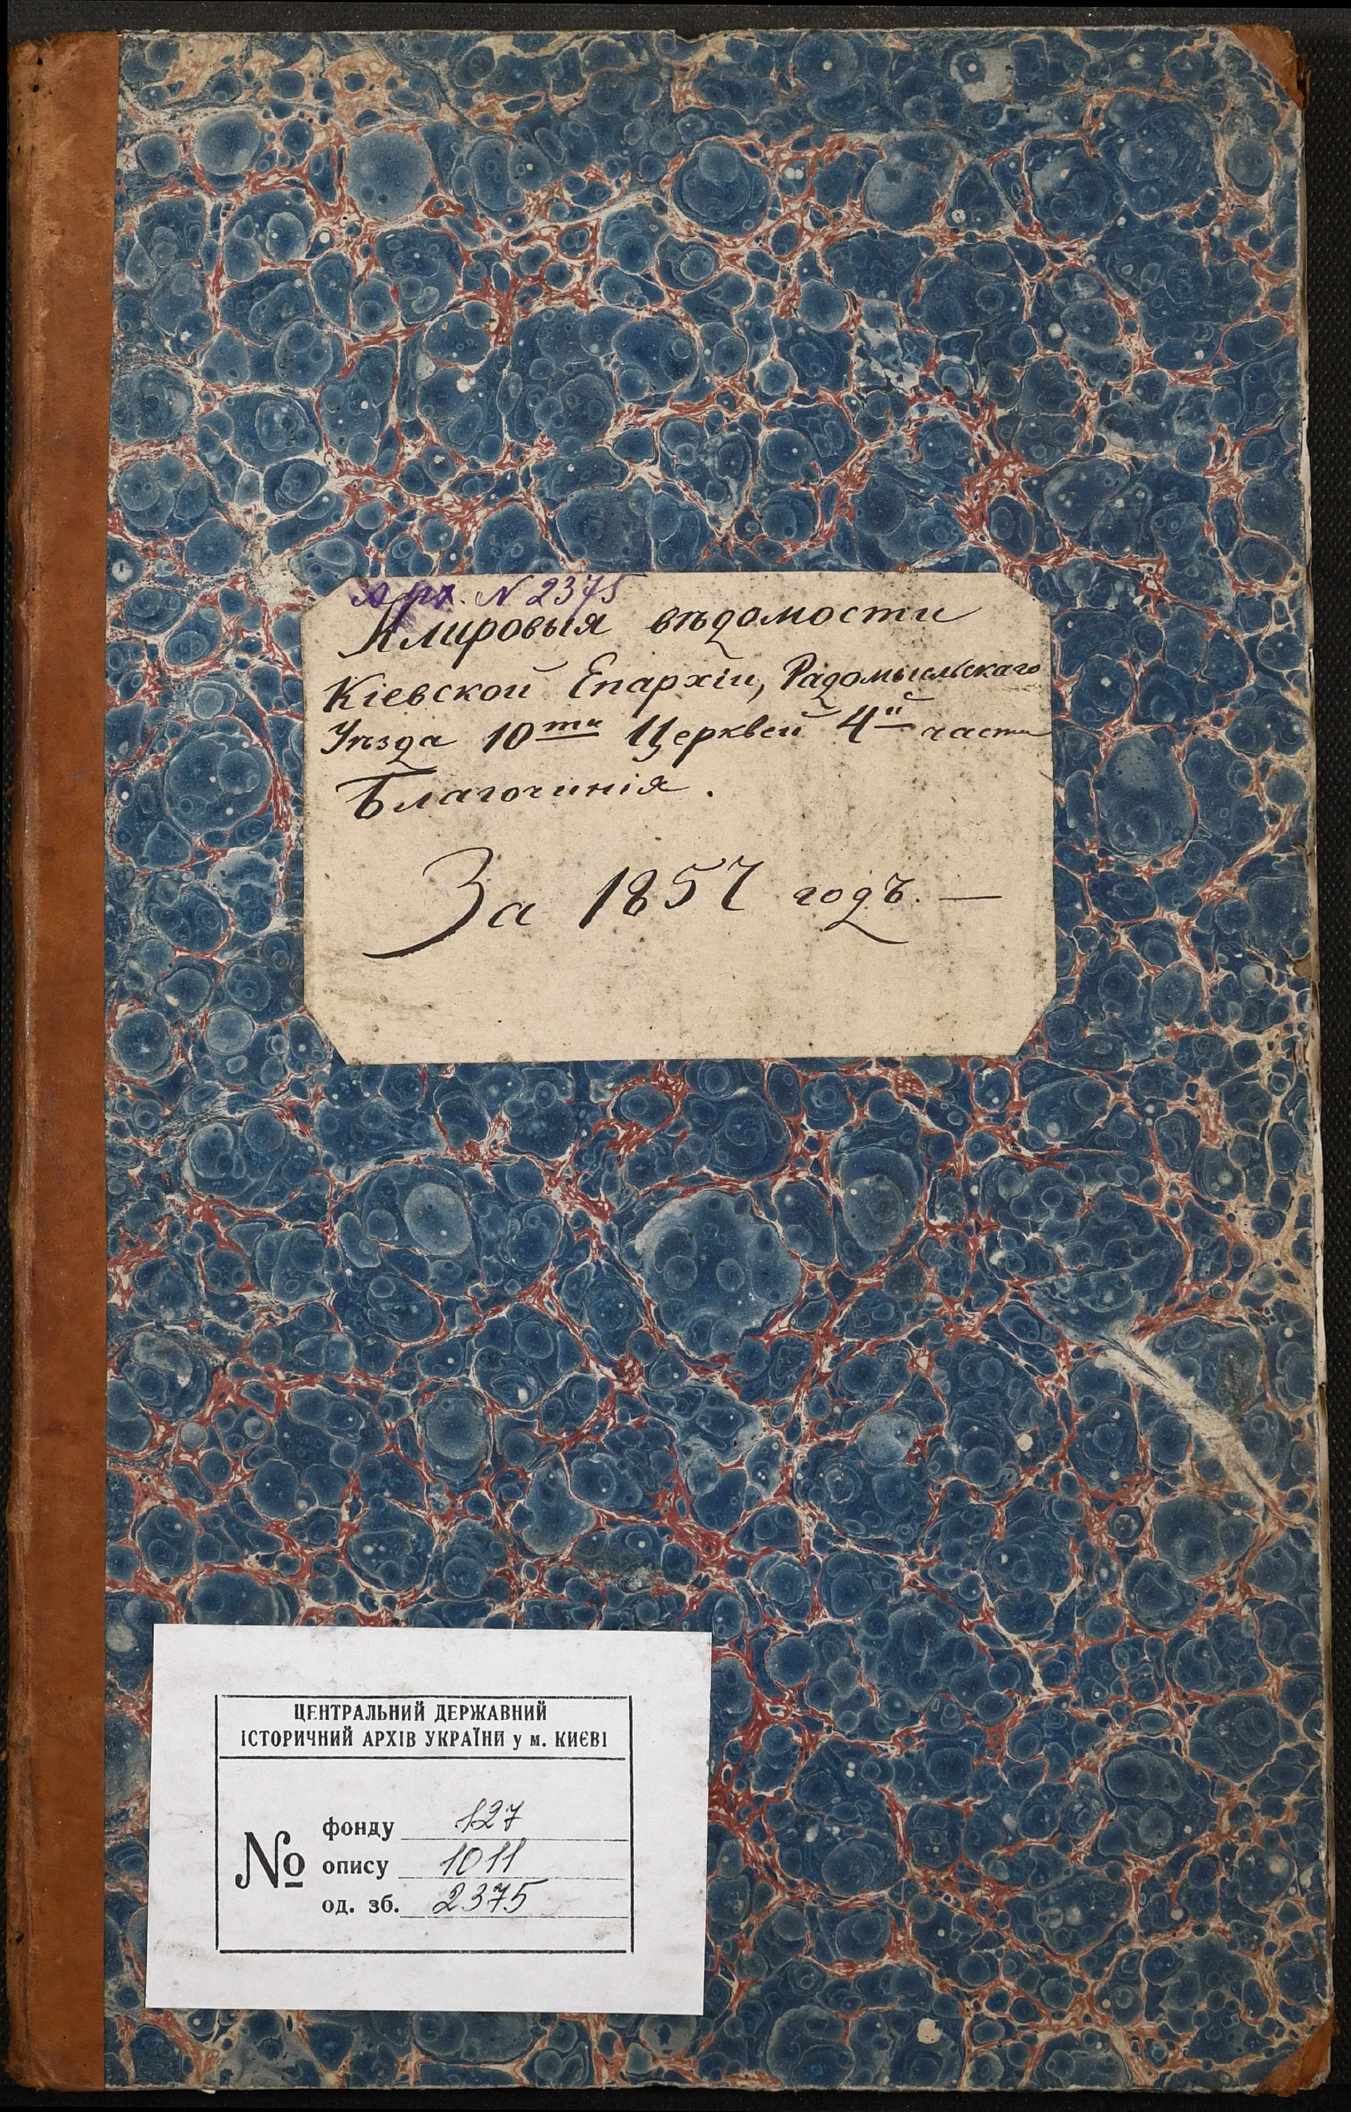 Арх. N 2375
Клировыя вѣдомости
Кіевской Епархіи, Радомысльскаго
Уѣзда 10ти Церквей 4й части
Благочинія.
За 1857 годъ. —
ЦЕНТРАЛЬНИЙ ДЕРЖАВНИЙ
ІСТОРИЧНИЙ АРХІВ УКРАЇНИ у м. КИЄВІ
№
фонду 127
опису 1011
од. зб. 2375